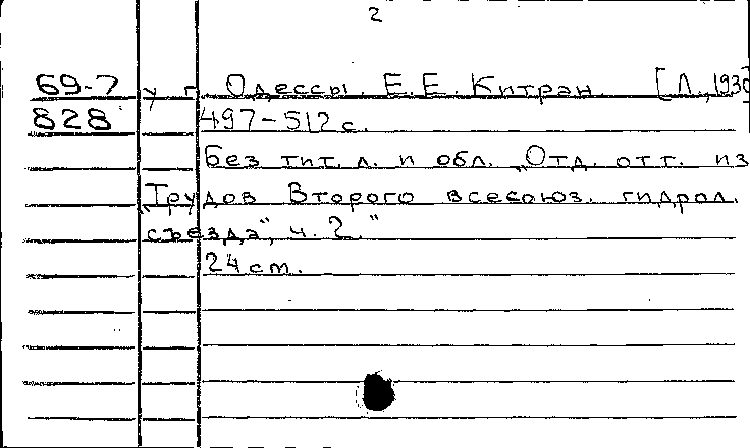 2
69-7 у г. Одессы. Е. Е. Китран. [Л., 1930
828 497-512 с.
Без тит. л. и обл. „Отд. отт. из
„Трудов Второго всесоюз. гидрол.
съезда", ч. 2."
24 cm.